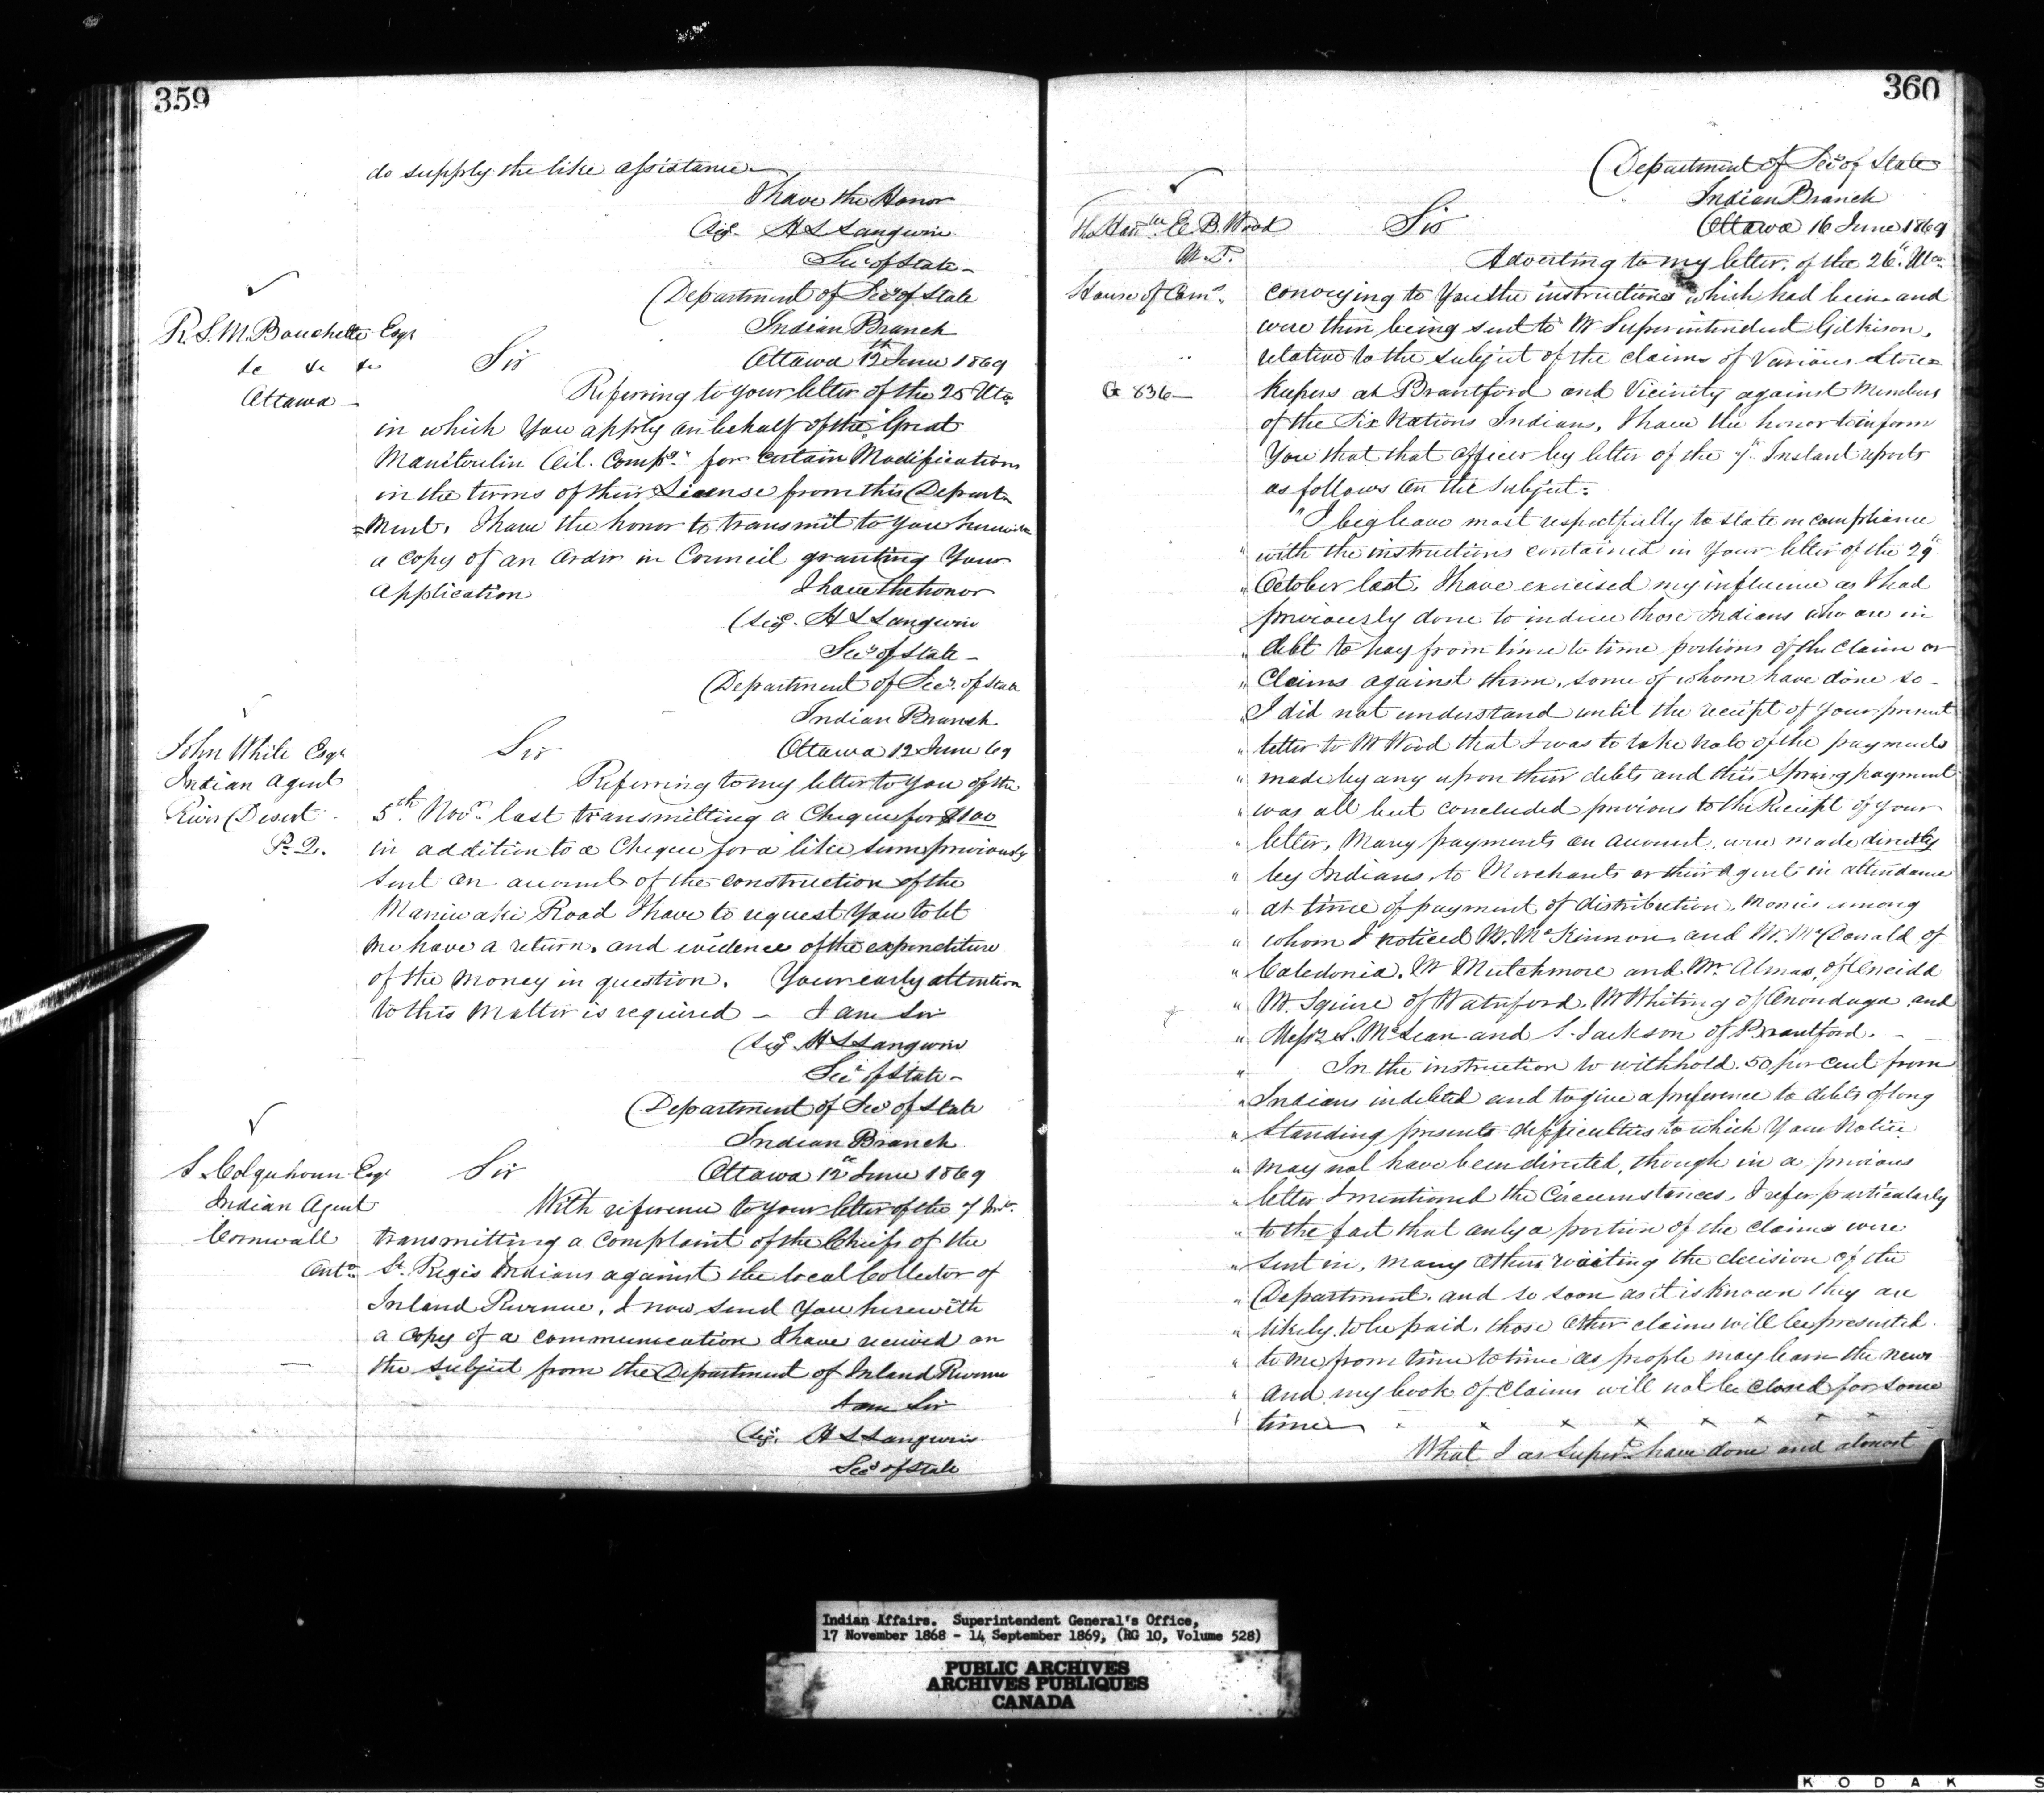 359
do supply the like assistance
I have the Honor
Sig. H L Langevin
Secy of State
R. S. M. Bouchette Esqr
&c &c &c
Ottawa
Department of Secy of State
Indian Branch
Ottawa 12th June 1869
Sir
Referring to your letter of the 25 Ulto
in which You apply on behalf of the Great
Manitoulin Oil. Compy. for certain Modifications
in the terms of their License from this Depart=
=ment. I have the honor to transmit to you herewith
a copy of an Order in Council granting Your
Application
I have the honor
(Sig. H L Langevin
Secy of State
John White Esqr
Indian Agent
River Desert
P. Q.
Department of Secy. of State
Indian Branch
Ottawa 12 June 69
Sir
Referring to my letter to You of the
5th. Novr. last transmitting a Cheque for $100
in addition to a Cheque for a like sum previously
sent on account of the construction of the
Maniwaki Road I have to request You to let
me have a return, and evidence of the expenditure
of the Money in question. Your early attention
to this Matter is required – I am Sir
(Sig H L Langevin
Secy of State –
S. Colquhoun Esqr
Indian Agent
Cornwall
Onto.
Department of Secy of State
Indian Branch
Ottawa 12th June 1869
Sir
With reference to your letter of the 7 Inst.
transmitting a Complaint of the Chiefs of the
St. Regis Indians against the local Collector of
Inland Revenue, I now send You herewith
a Copy of a communication I have received on
the subject from the Department of Inland Revenue
I am Sir
(Sig. H L Langevin
Secy of State
360
The Honble. E. B. Wood
M. P.
House of Coms.
G 836
Department of Secy of State
Indian Branch
Ottawa 16 June 1869
Sir
Adverting to my letter, of the 26th. Ulto.
conveying to You the instructions which had been and
were then being sent to Mr Superintendent Gilkison,
relative to the subject of the claims of Various Store=
keepers at Brantford and Vicinity against Members
of the Six Nations Indians, I have the honor to inform
You that that officer by letter of the 7th. Instant reports
as follows on the subject:
"I beg leave most respectfully to state in compliance
" with the instructions contained in Your letter of the 29th
" October last, I have exercised my influence as I had
" previously done to induce those Indians who are in
" debt to pay from time to time portions of the Claim or
" Claims against them, some of whom have done so –
" I did not understand until the receipt of your present
" letter to Mr Wood that I was to take note of the payments
" made by any upon their debts and this Spring payment
" was all but concluded previous to the Receipt of Your
" letter, Many payments on account, were made directly
" by Indians, to Merchants or their Agents in attendance
" at time of payment of distribution, Monies among
" whom I noticed Mr. McKinnon, and Mr. McDonald of
" Caledonia, Mr Mutchmore and Mr Almas, of Oneida
" Mr. Squire of Waterford, Mr Whiting of Onondaga and
" Messrs S. McLean and S. Jackson of Brantford. –
" In the instruction to withhold 50 per Cent from
" Indians indebted and to give a preference to debts of long
" standing presents difficulties to which Your Notice
" may not have been directed, though in a previous
" letter I mentioned the Circumstances, I refer particularly
" to the fact that only a portion of the Claims were
" sent in, many others waiting the decision of the
" Department, and so soon as it is known they are
" likely to be paid, those other claims will be presented
" to me from time to time as people may learn the news
" and my book of Claims will not be closed for some
" time x x x x x x x x
What I as Supert. have done and almost
Indian Affairs. Superintendent General's Office,
17 November 1868 - 14 September 1869, (RG 10, Volume 528)
PUBLIC ARCHIVES
ARCHIVES PUBLIQUES
CANADA
KODAK S